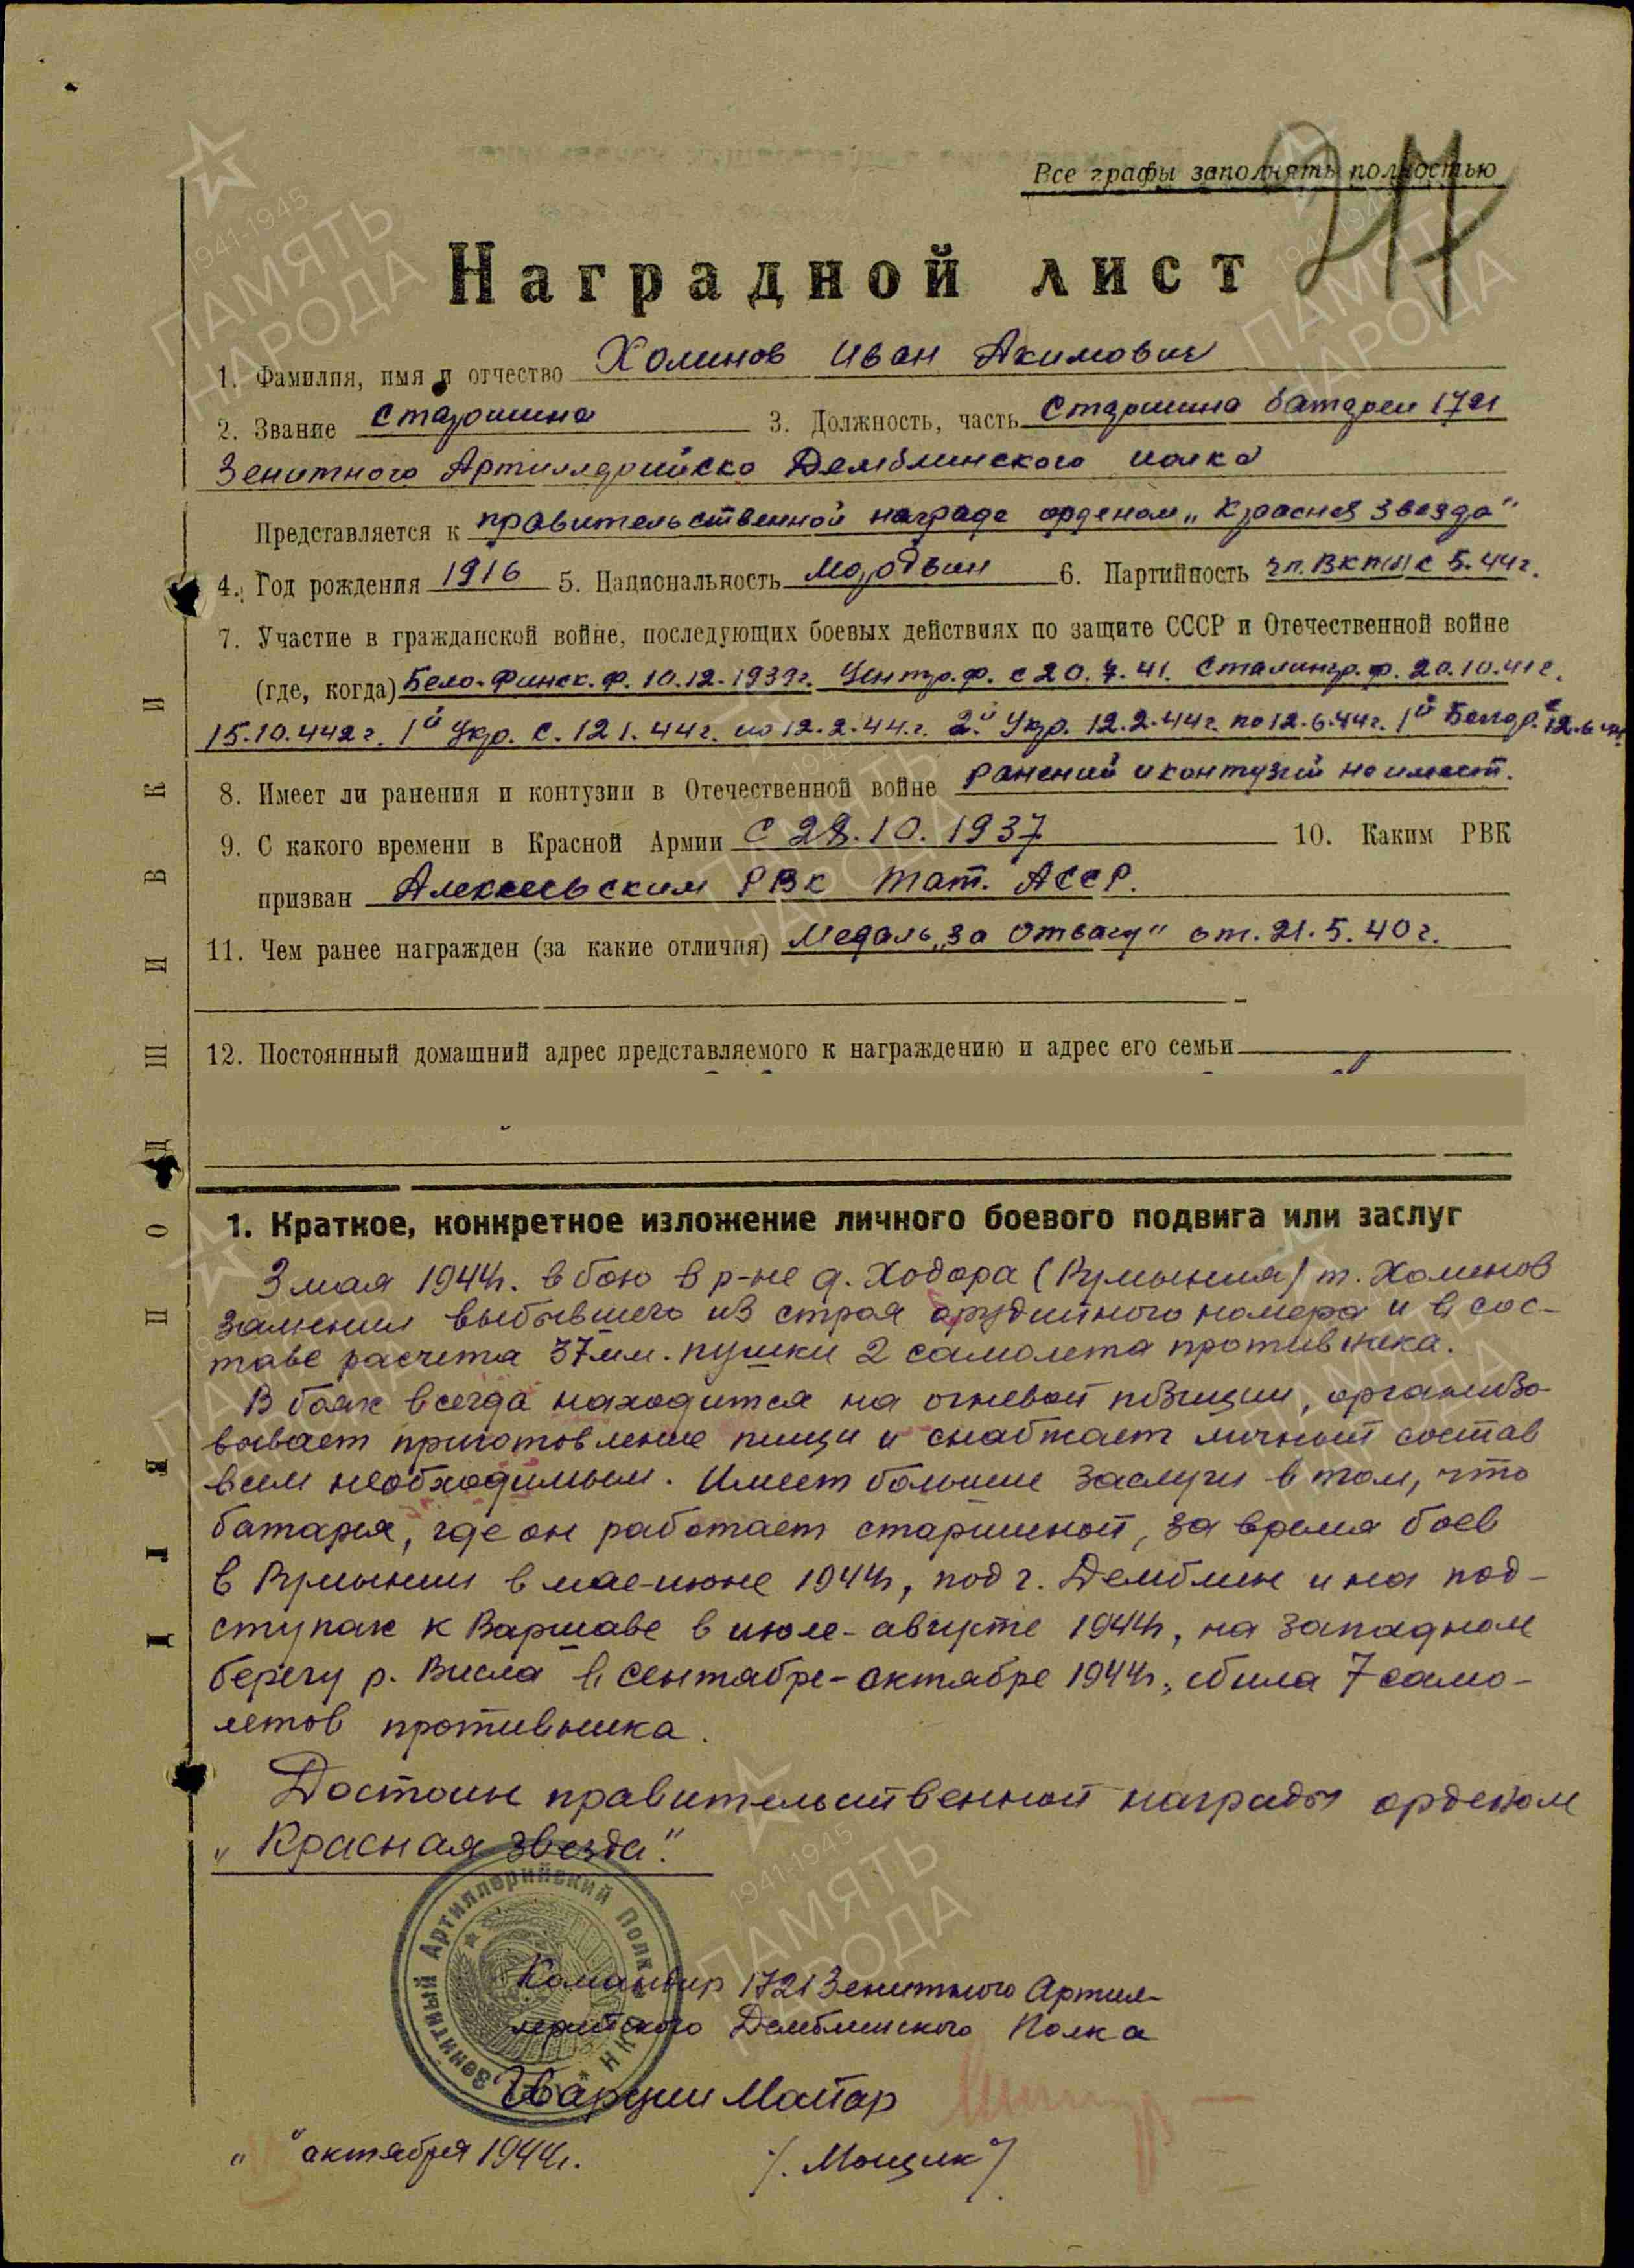 Все графы заполнять полностью
217
Наградной лист
1. Фамилия, имя и отчество Холинов Иван Акимович
2. Звание Старшина 3. Должность, часть Старшина батареи 1721
Зенитного Артиллерийско Демблинского полка
Представляется к правительственной награде орденом „Красная Звезда"
4. Год рождения 1916 5. Национальность Мордвин 6. Партийность чл. ВКП(б) с 5.44г.
7. Участие в гражданской войне, последующих боевых действиях по защите СССР и Отечественной войне
(где, когда) Бело-Финск. ф. 10.12.1939г. Центр. ф. с 20.7.41. Сталингр. ф. 20.10.41г.
15.10.442г. 1й Укр. с. 12 1.44г. по 12.2.44.г. 2й Укр. 12.2.44г. по 12.6.44г. 1й Белор. 12.6
8. Имеет ли ранения и контузии в Отечественной войне ранений и контузий не имеет.
9. С какого времени в Красной Армии С 28.10.1937 10. Каким РВК
призван РВК Тат. АССР.
11. Чем ранее награжден (за какие отличия) Медаль „за Отвагу" от. 21.5.40г.
12. Постоянный домашний адрес представляемого к награждению и адрес его семьи
ДЛЯ ПОДШИВКИ
1. Краткое, конкретное изложение личного боевого подвига или заслуг
3 мая 1944г. в бою в р-не д. Ходора (Румыния) т. Холинов
заменил выбывшего из строя орудийного номера и в сос-
таве расчета 37мм. пушки 2 самолета противника.
В боях всегда находится на огневой позиции, организо-
вывает приготовление пищи и снабжает личный состав
всем необходимым. Имеет большие заслуги в том, что
батарея, где он работает старшиной, за время боев
в Румынии в мае-июне 1944г, под г. Демблин и на под-
ступах к Варшаве в июле-августе 1944г, на западном
берегу р. Висла в сентябре-октябре 1944г., сбила 7 само-
летов противника.
Достоин правительственной награды орденом
„Красная звезда".
Зенитный Артиллерийский Полк НКО
Командир 1721 Зенитного Артил-
лерийского Демблинского Полка
Гвардии Майор
„ " октября 1944г. /. Мощик /
1941-1945
ПАМЯТЬ
НАРОДА